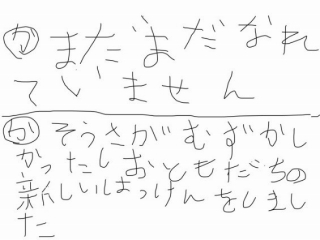 か まだまだなれ
ていません
か そうさがむずかし
かったしおともだちの
新しいはっけんをしまし
た